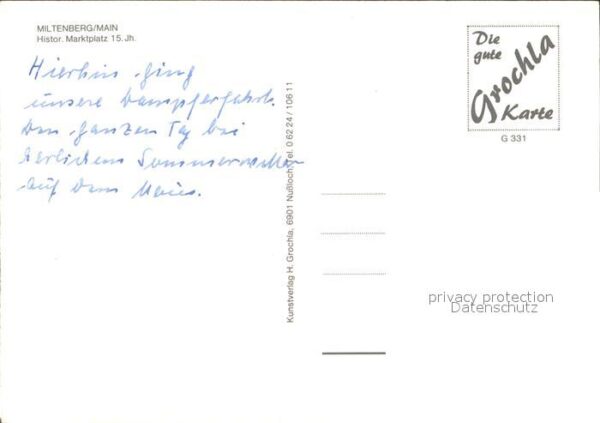 MILTENBERG/MAIN
Histor. Marktplatz 15. Jh.
Hierhin ging
unsere Dampferfahrt.
Den ganzen Tag bei
herlichem Sommerwetter
auf dem Main.
Kunstverlag H. Grochla, 6901 Nußloch, Tel. 0 62 24 / 106 11
Die
gute
Grochla
Karte
G 331
privacy protection
Datenschutz